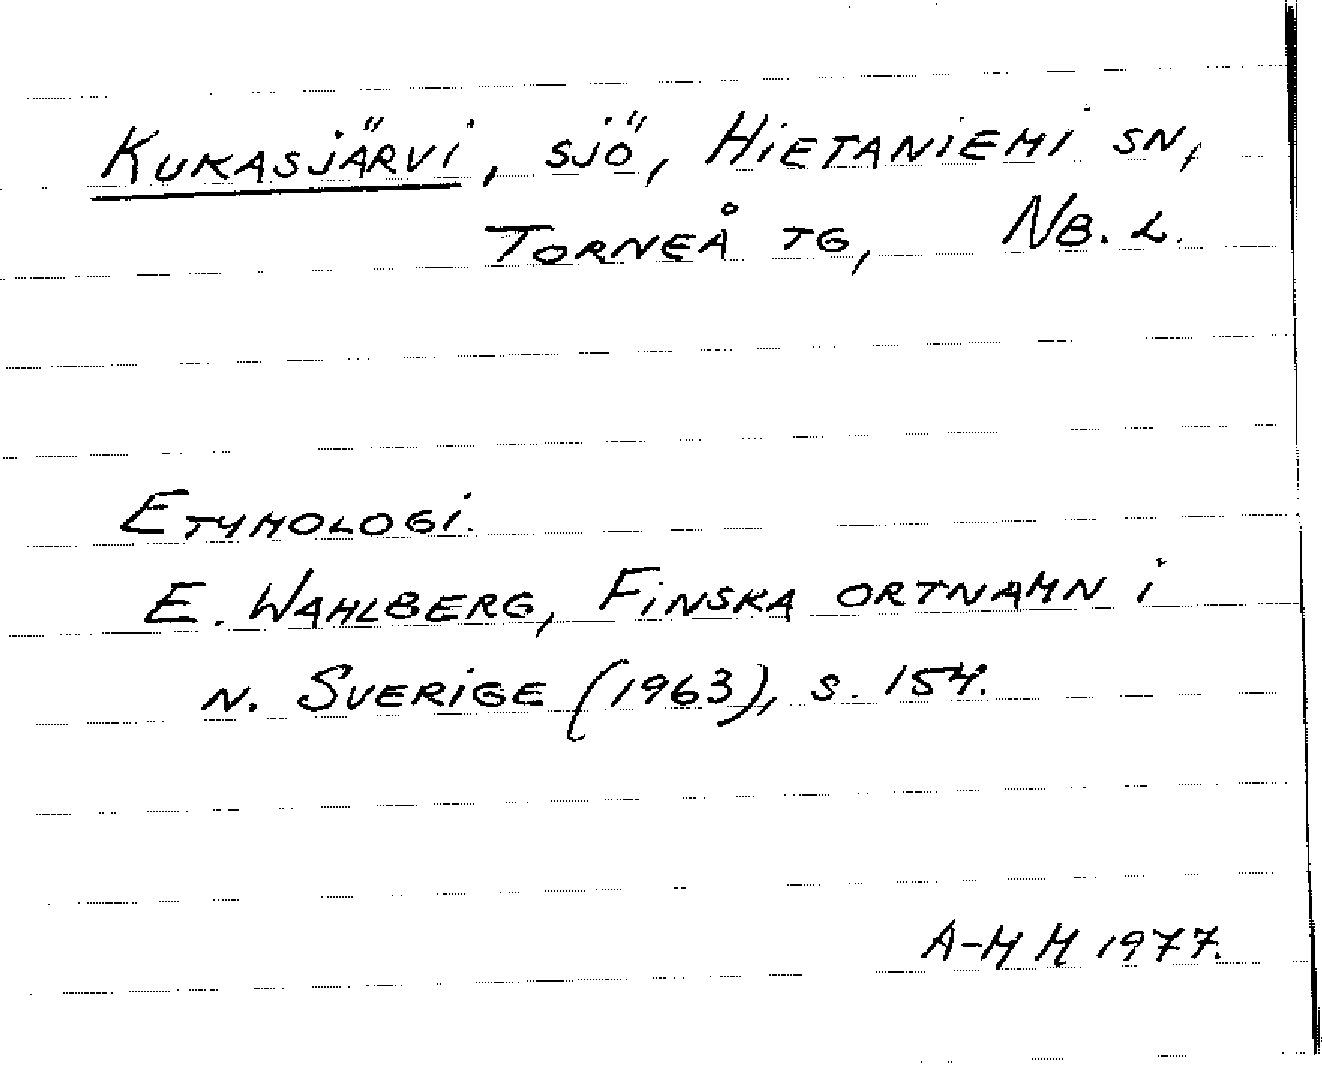 Kukasjärvi, sjö, Hietaniemi sn,
Torneå tg, Nb. l.
Etymologi.
E. Wahlberg, Finska ortnamn i
n. Sverige (1963), s. 154.
A-M M 1977.